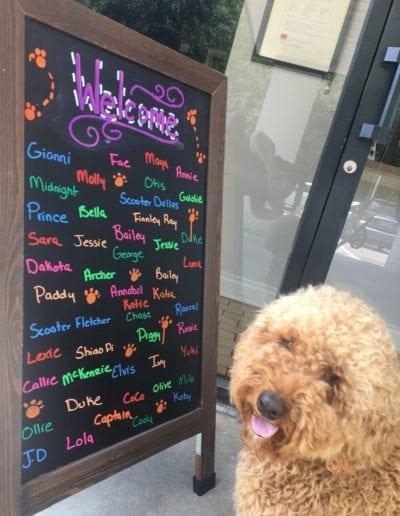 Welcome
Gianni Fae Maya Annie
Midnight Molly Otis Goldie
Prince Bella Scooter Dallas
Finnley Ray
Sara Jessie Bailey Jessie Duke
George Luna
Dakota Archer Bailey
Paddy Annabel Katia
Katie
Scooter Fletcher Chase Rascal
Lexie Shiao Pi Piggy Rosie
Callie McKenzie Elvis Ivy Yuki
Duke CoCo Olive Milo
Ollie Captain Cody Koby
J.D Lola